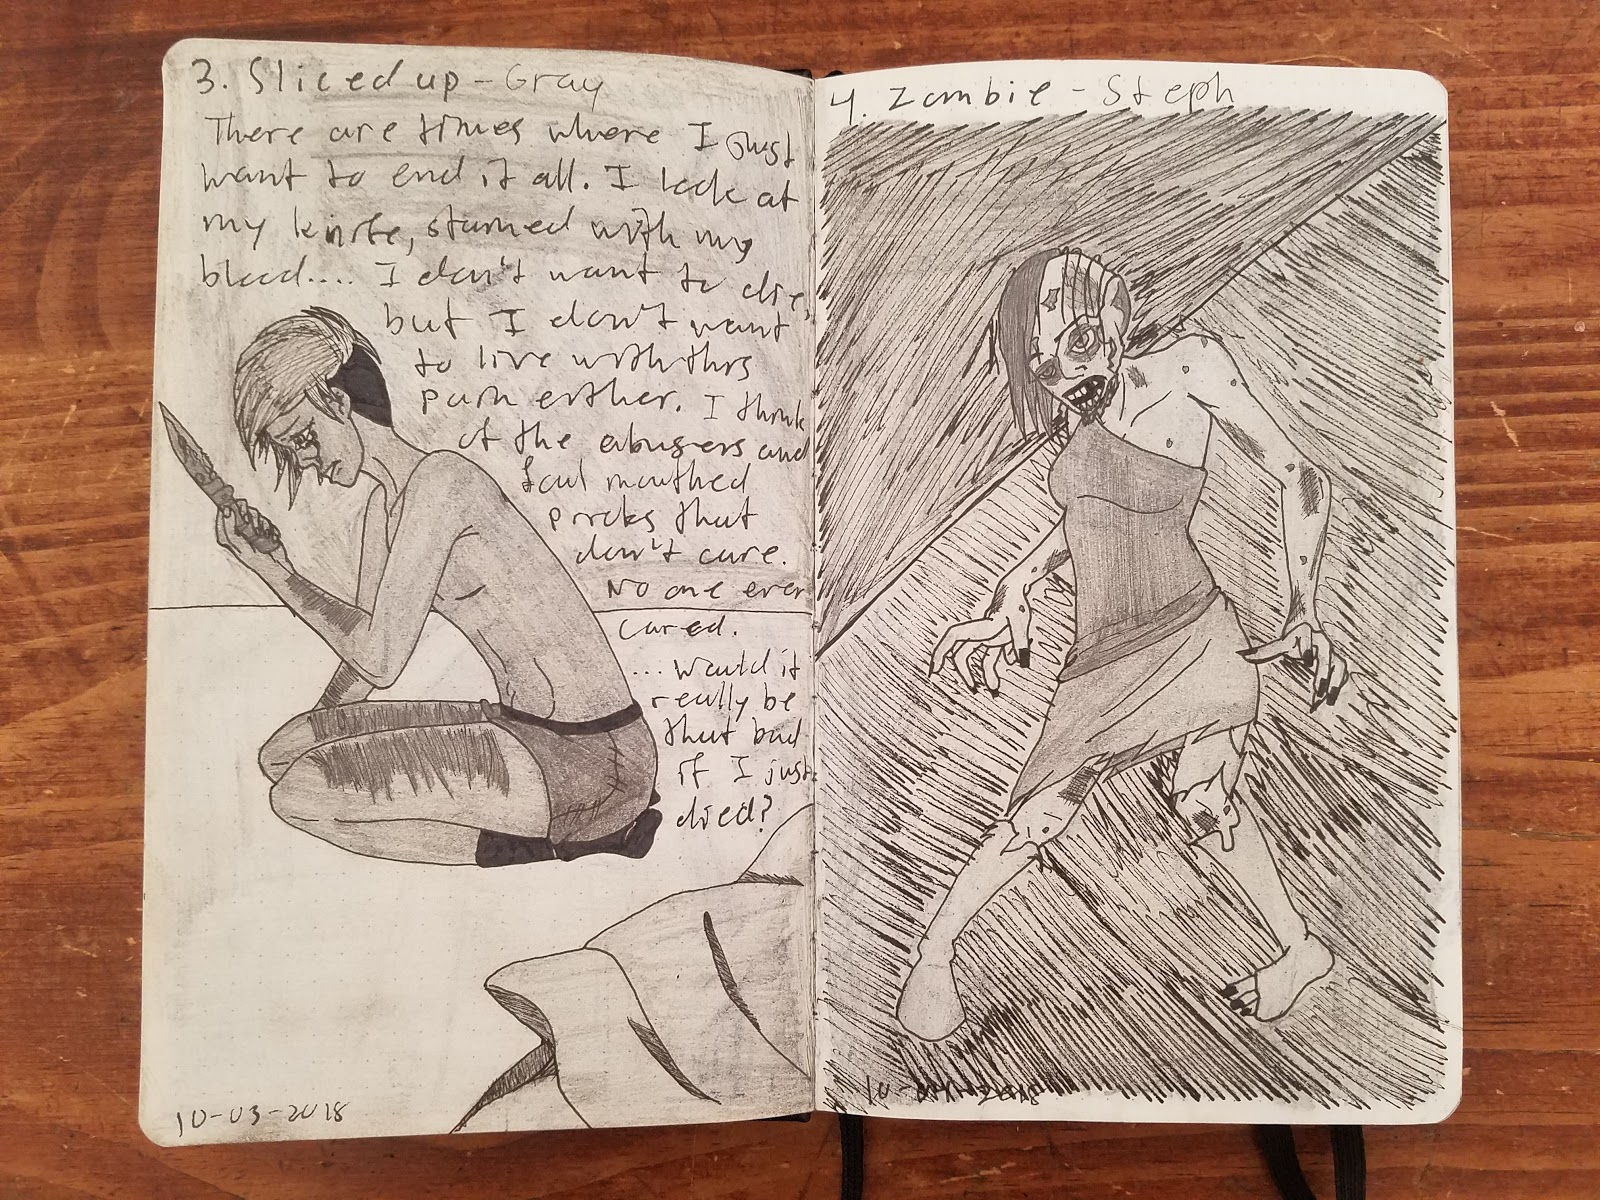 3. Sliced up - Gray
There are times where I just
want to end it all. I look at
my knife, stained with my
blood.... I don't want to die,
but I don't want
to live with this
pain either. I think
of the abusers and
foul mouthed
pricks that
don't care.
No one ever
cared.
.... would it
really be
that bad
if I just
died?
10-03-2018
4. Zombie - Steph
10-04-2018